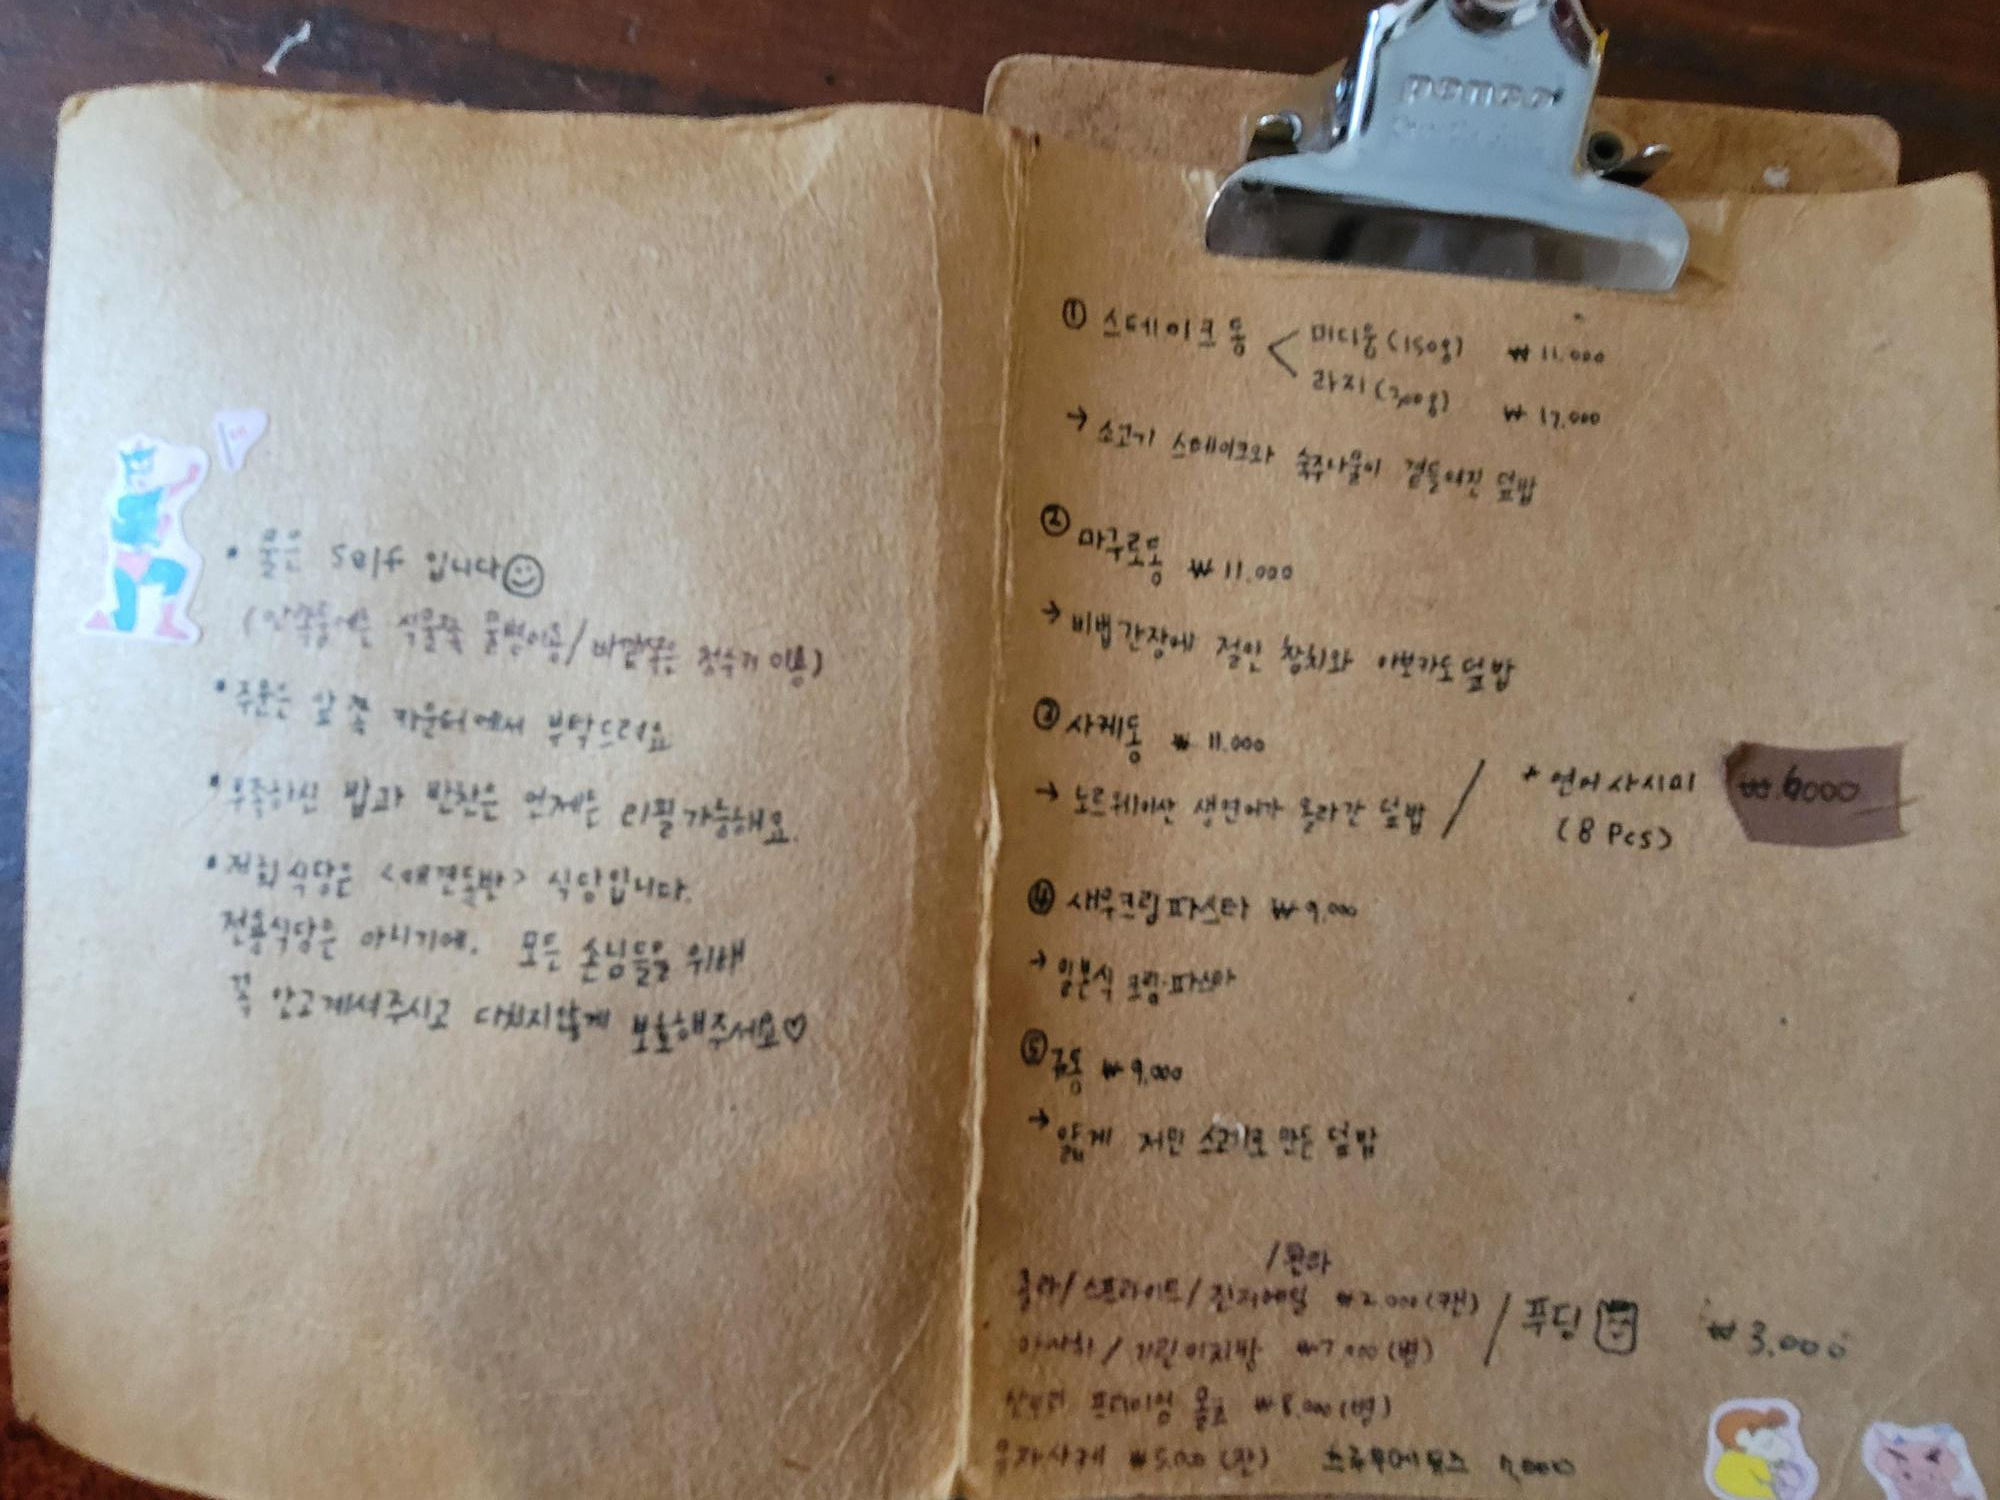 penco
• 물은 self 입니다
(안쪽등에는 식물쪽 물병이용/바깥쪽은 정수기 이용)
• 주문은 앞쪽 카운터에서 부탁드려요
• 부족하신 밥과 반찬은 언제든 리필가능해요.
• 저희식당은 <애견동반> 식당입니다.
전용식당은 아니기에. 모든 손님들을 위해
꼭 안고계셔주시고 다치지않게 보호해주세요♡
① 스테이크동 < 미디움(150g) ₩ 11.000
라지(300g) ₩ 17.000
→ 소고기 스테이크와 숙주나물이 곁들여진 덮밥
② 마구로동 ₩ 11.000
→ 비법간장에 절인 참치와 아보카도덮밥
③ 사케동 ₩ 11.000
→ 노르웨이산 생연어가 올라간 덮밥 / * 연어사시미 ₩ 6000
(8 Pcs)
④ 새우크림파스타 ₩ 9.000
→ 일본식 크림파스타
⑤ 규동 ₩ 9.000
→ 얇게 저민 소고기로 만든 덮밥
/환타
콜라/스프라이트/진저에일 ₩2.000(캔) / 푸딩 ₩ 3.000
아사히/기린이치방 ₩7.000(병)
산토리 프리미엄 몰츠 ₩8.000(병)
유자사케 ₩5.000 (잔) 7.000